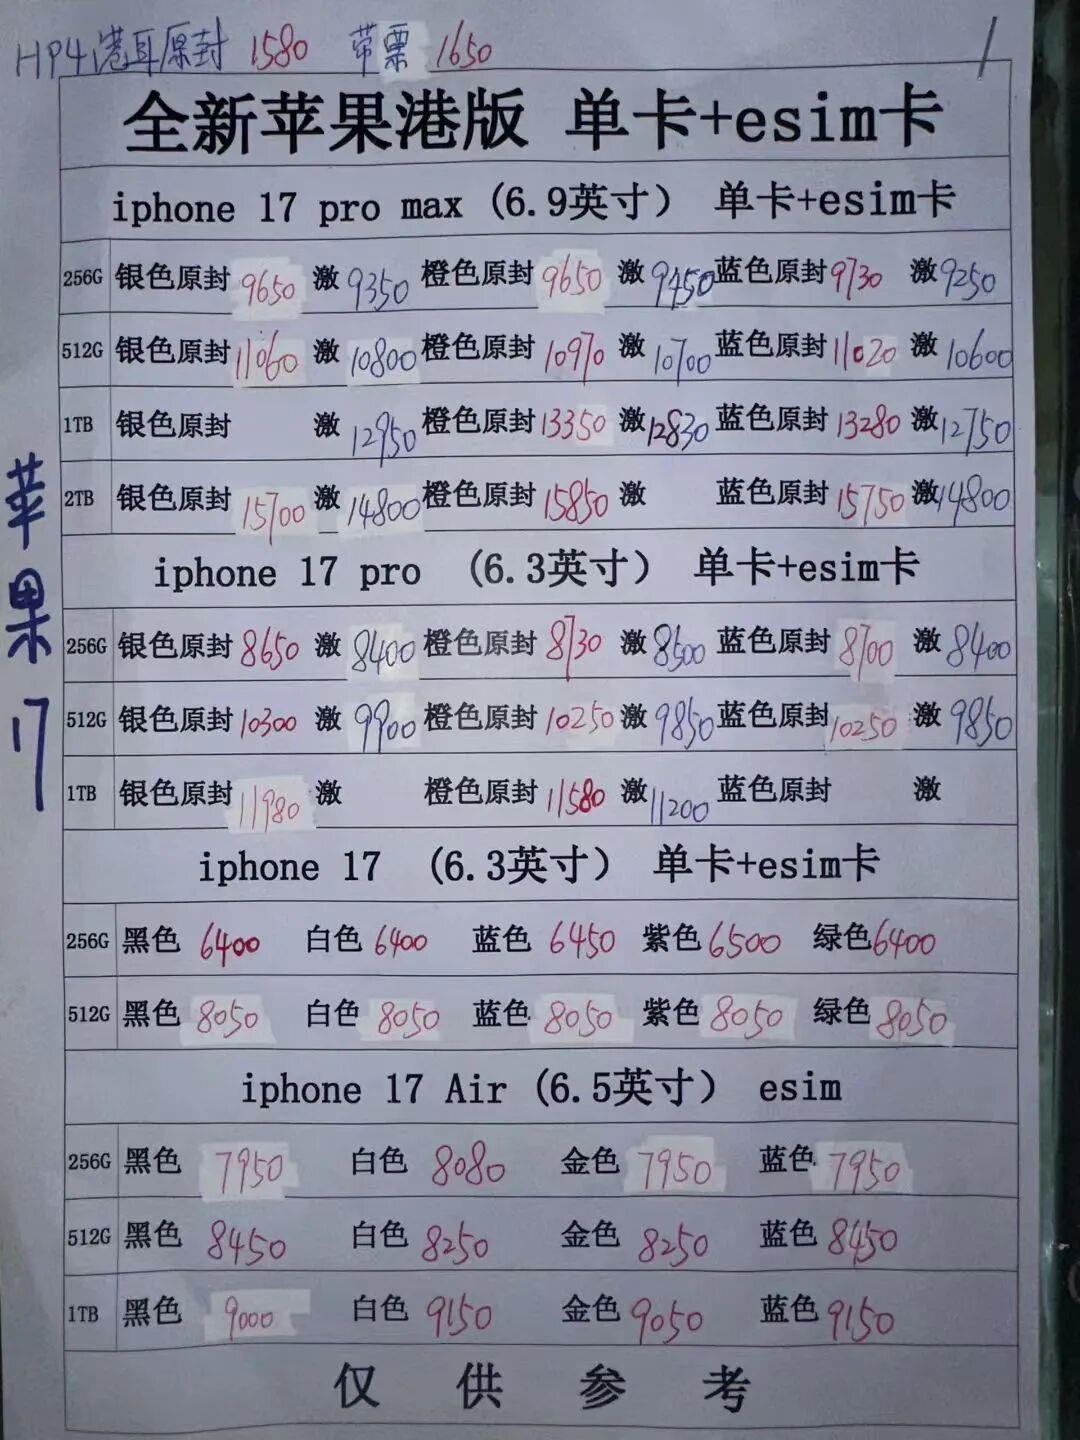 HP4港耳原封 1580 带票 1650
全新苹果港版 单卡+esim卡
iphone 17 pro max (6.9英寸) 单卡+esim卡
256G 银色原封 9650 激 9350 橙色原封 9650 激 9450 蓝色原封 9730 激 9250
512G 银色原封 11060 激 10800 橙色原封 10970 激 10700 蓝色原封 11020 激 10600
1TB 银色原封 激 12950 橙色原封 13350 激 12830 蓝色原封 13280 激 12750
2TB 银色原封 15700 激 14800 橙色原封 15850 激 蓝色原封 15750 激 14800
iphone 17 pro (6.3英寸) 单卡+esim卡
256G 银色原封 8650 激 8400 橙色原封 8730 激 8500 蓝色原封 8700 激 8400
512G 银色原封 10300 激 9900 橙色原封 10250 激 9850 蓝色原封 10250 激 9850
1TB 银色原封 11980 激 橙色原封 11580 激 11200 蓝色原封 激
iphone 17 (6.3英寸) 单卡+esim卡
256G 黑色 6400 白色 6400 蓝色 6450 紫色 6500 绿色 6400
512G 黑色 8050 白色 8050 蓝色 8050 紫色 8050 绿色 8050
iphone 17 Air (6.5英寸) esim
256G 黑色 7950 白色 8080 金色 7950 蓝色 7950
512G 黑色 8450 白色 8250 金色 8250 蓝色 8450
1TB 黑色 9000 白色 9150 金色 9050 蓝色 9150
仅供参考
苹果17